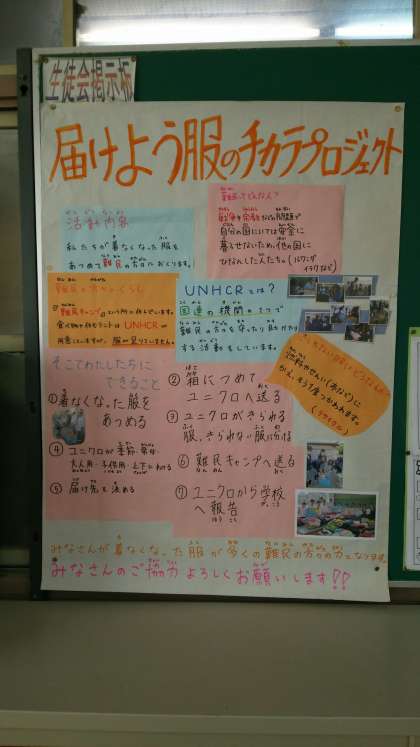 生徒会掲示板
届けよう服のチカラプロジェクト
活動内容
私たちが着なくなった服を
あつめて難民の方々に
難民ってどんな人?
戦争や宗教などの問題で
自分の国にいては安全に
暮らせないため他の国に
ひなんした人たち。(ルワンダ
イラクなど)
難民の方々のくらし
難民キャンプという所に住んでいます。
食べ物や住むテントはUNHCRが
用意していますが、服が足りていません。
UNHCRとは?
国連の機関の1つで
難民の方々を守ったり助けたり
する活動をしています。
そこでわたしたちに
できること
①着なくなった服を
あつめる
②箱につめて
ユニクロへ送る
③ユニクロがきられる
服、きられない服に分ける
④ユニクロが季節・男女
大人用・子供用・上下にわける
⑤届け先を決める
⑥難民キャンプへ送る
⑦ユニクロから学校
へ報告
燃料やせんい(糸など)に
かえ、もう1度つかわれます。
(リサイクル)
みなさんが着なくなった服が多くの難民の方々の力となります。
みなさんのご協力よろしくお願いします!!